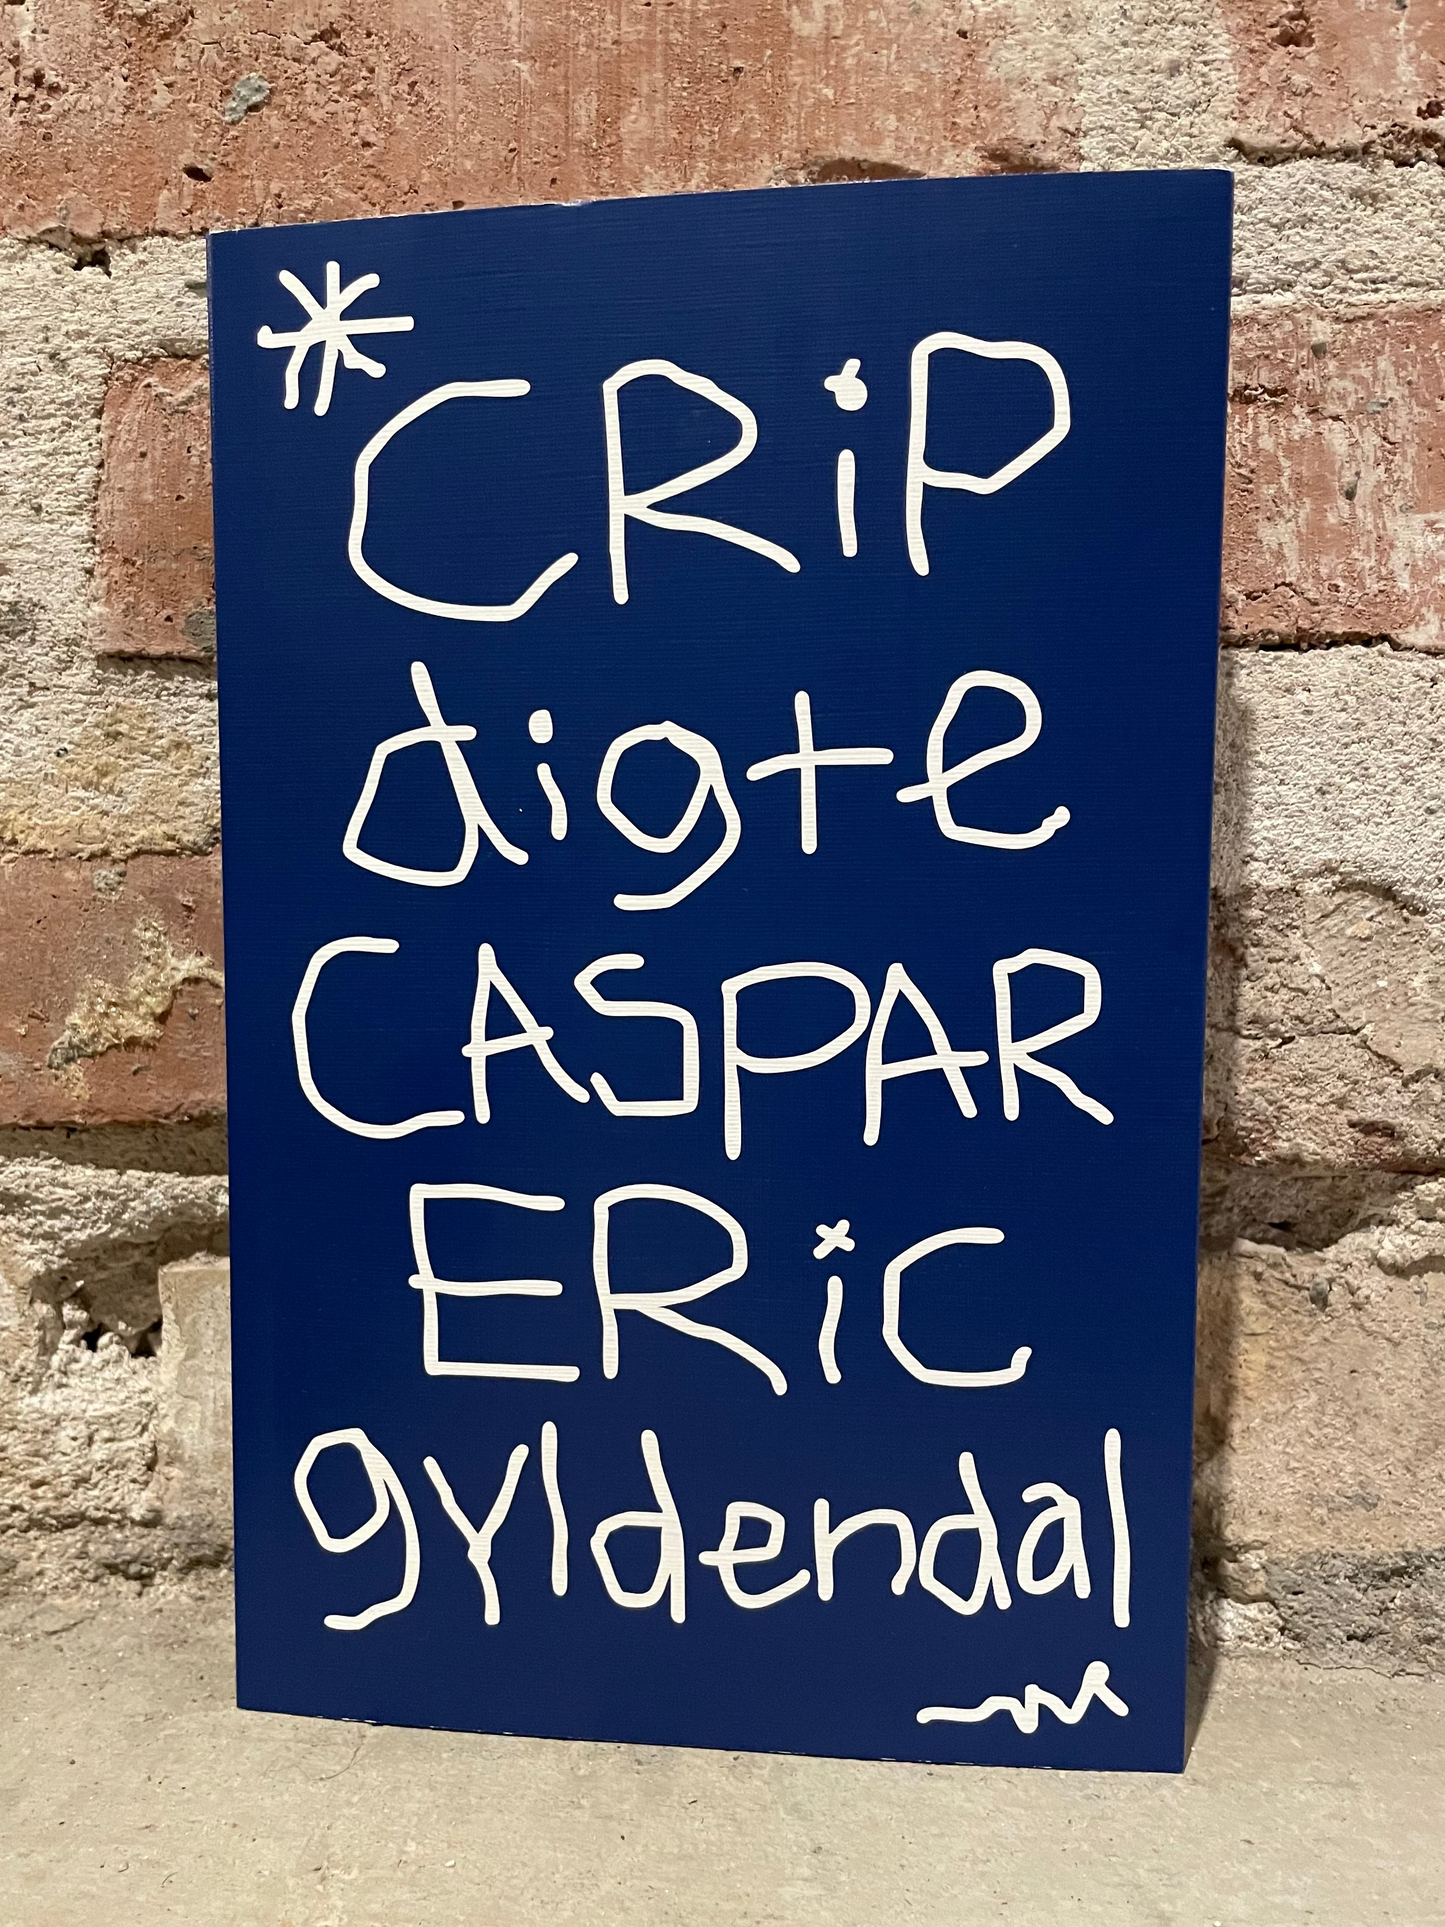 *CRiP
digte
CASPAR
ERiC
gyldendal